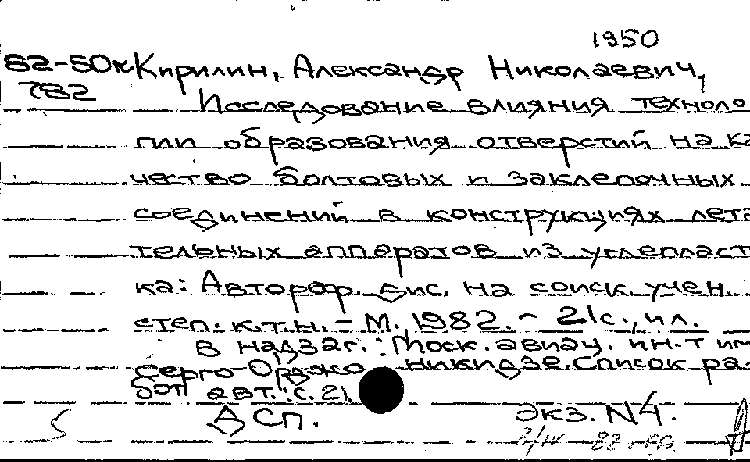 1950
82-50к Кирилин, Александр Николаевич,
782
Исследование влияния техноло
гии образования отверстий на ка
чество болтовых и заклепочных
соединений в конструкциях лета
тельных аппаратов из углепласти
ка: Автореф. дис. на соиск. учен.
степ. к.т.н. - М., 1982. - 21с., ил.
В надзаг.: Моск. авиац. ин-т им
Серго Орджо никидзе. Список ра
бот авт.: с. 21
ДСП. экз. N4.